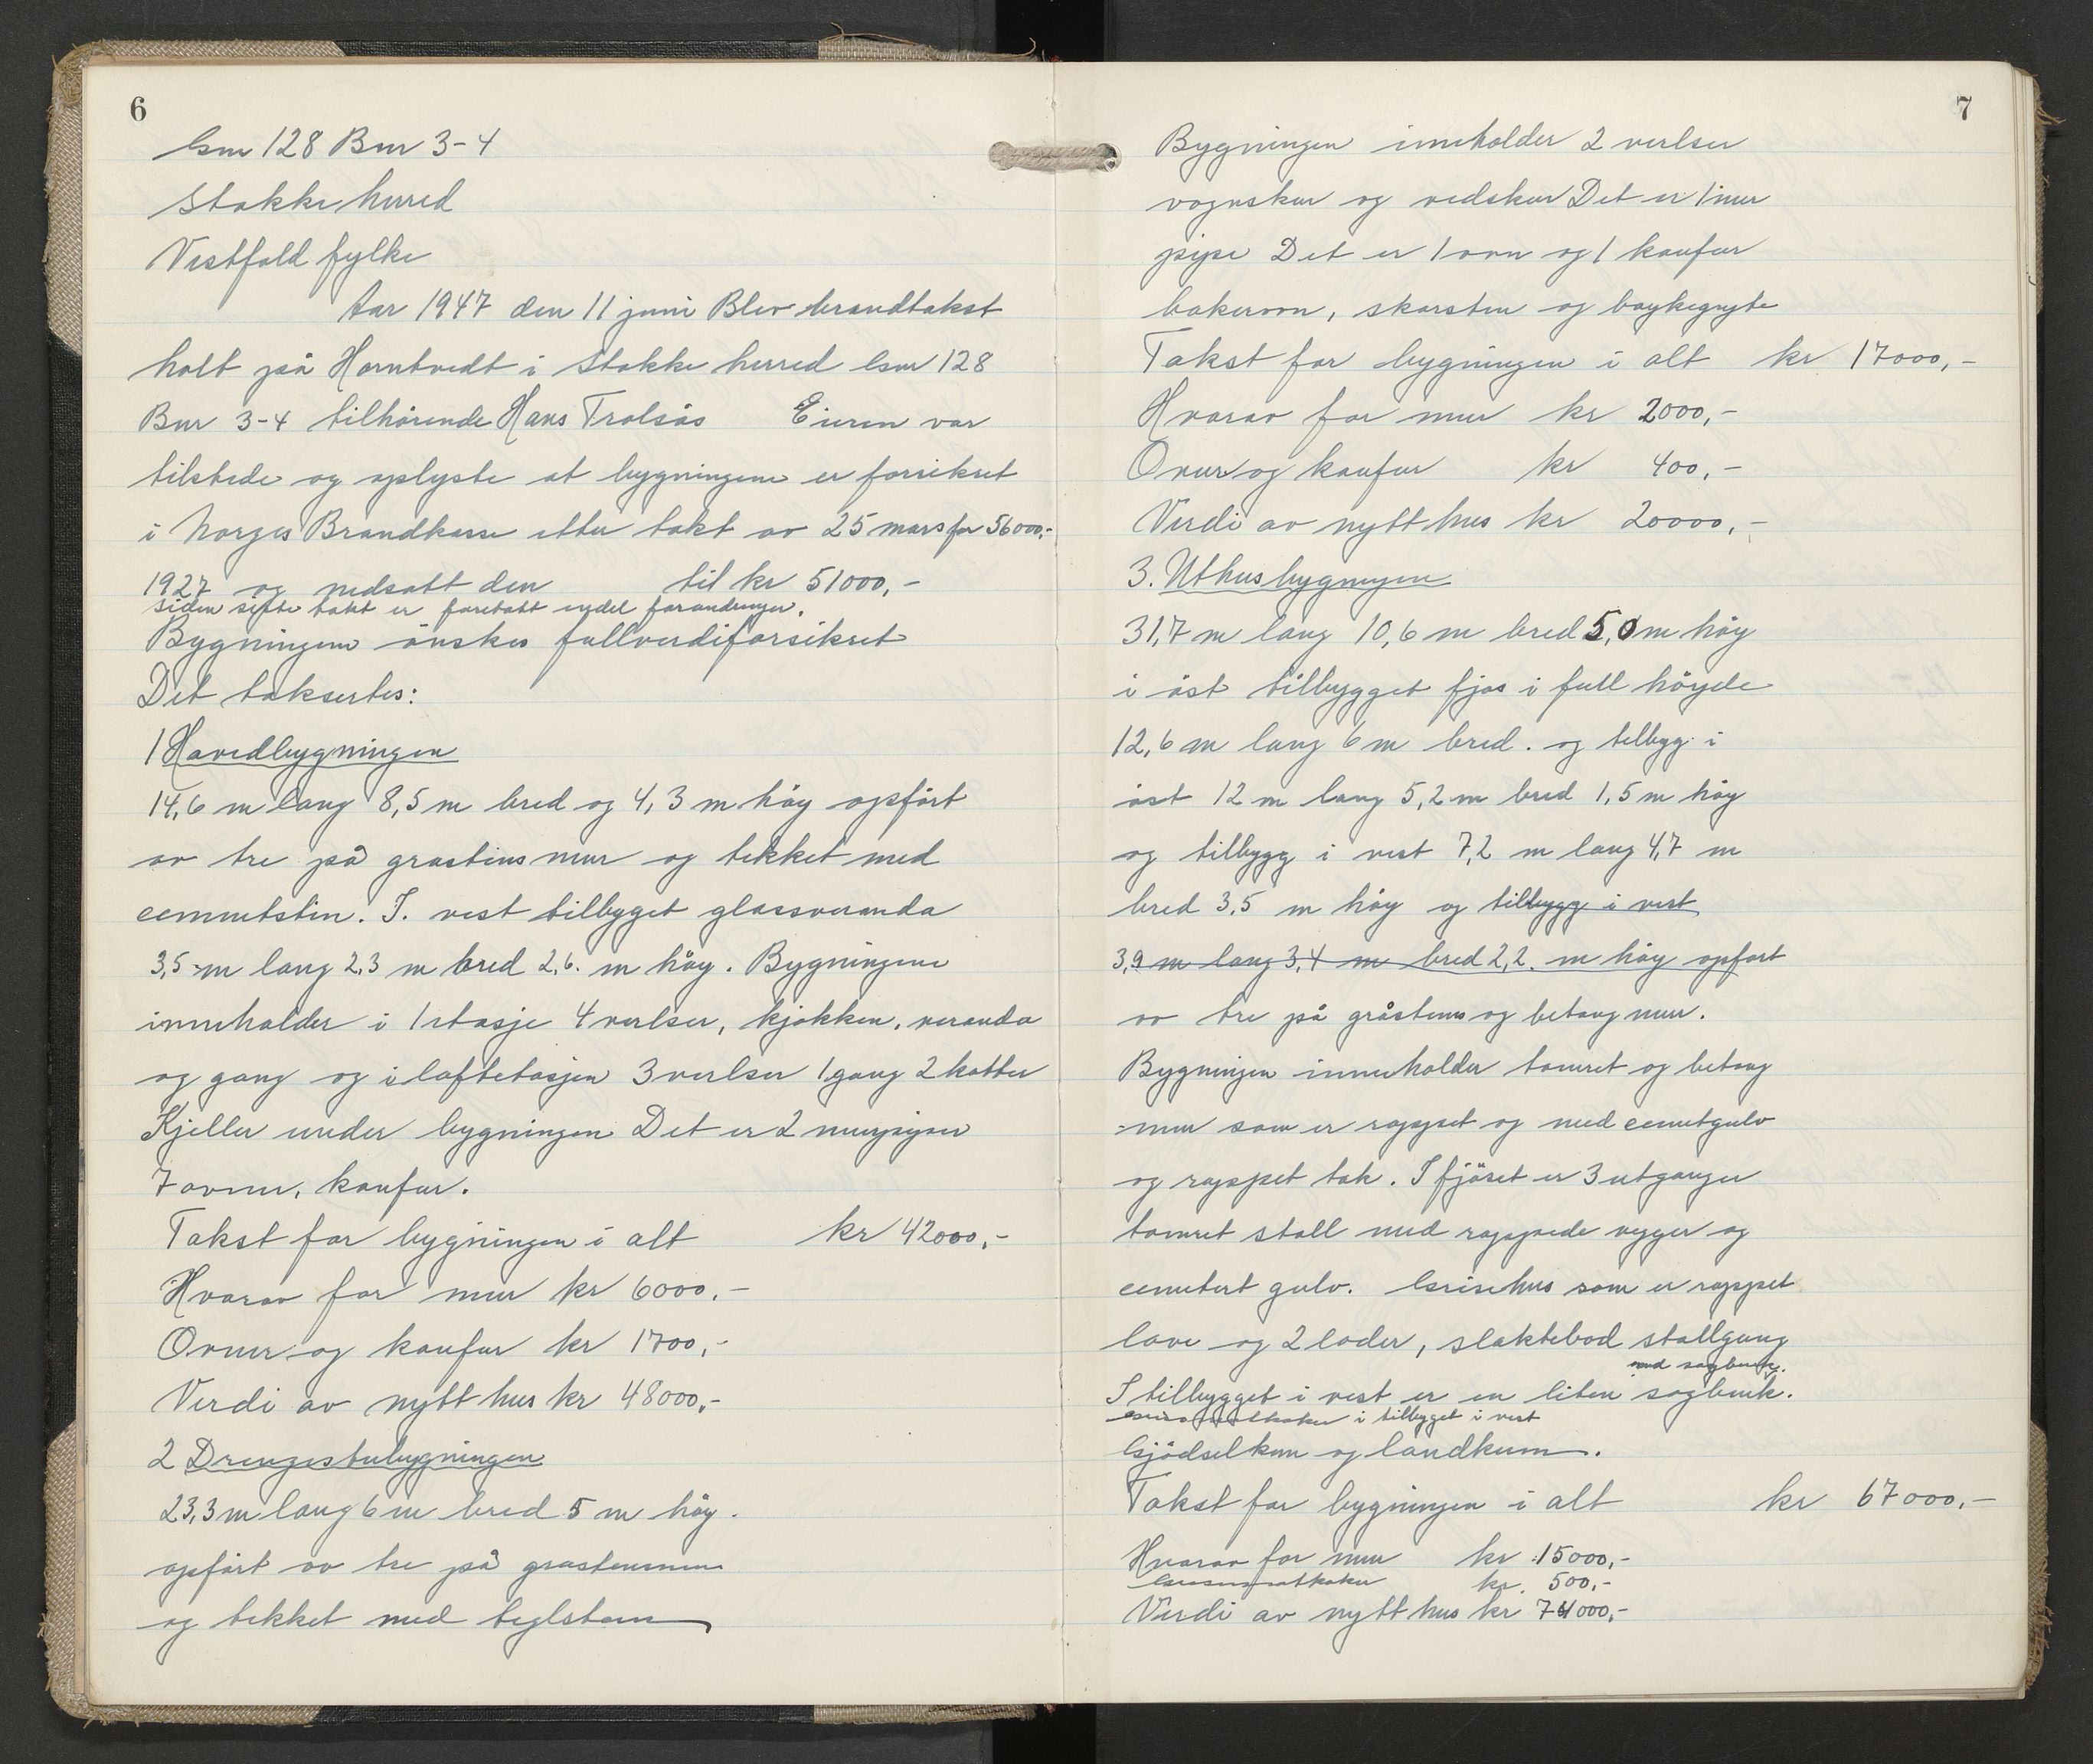 6
Gnr 128 Bnr 3-4
Stokke herred
Vestfold fylke
Aar 1947 den 11 juni Blev brandtakst
holt på Horntvedt i Stokke herred Gnr 128
Bnr 3-4 tilhørende Hans Trolsås Eieren var
tilstede og oplyste at bygningene er forsikret
i Norges Brandkasse etter takst av 25 mars for 56000,-
1927 og nedsatt den til kr 51000,-
siden siste takst er foretatt endel forandringer.
Bygningene önskes fullverdiforsikret
Det taksertes:
1 Hovedbygningen
14,6 m lang 8,5 m bred og 4,3 m höy opfört
av tre på grastens mur og tekket med
cementsten. I. vest tilbygget glassveranda
3,5 m lang 2,3 m bred 2,6. m höy. Bygningene
inneholder i 1 etasje 4 verlser, kjøkken, veranda
og gang og i loftetasjen 3 verlser 1 gang 2 kotter
Kjeller under bygningen Det er 2 murpiper
7 ovner, komfur.
Takst for bygningen i alt kr 42000,-
Hvorav for mur kr 6000,-
Ovner og komfur kr 1700,-
Verdi av nytt hus kr 48000,-
2 Drengestubygningen
23,3 m lang 6 m bred 5 m höy.
opfört av tre på grastensmur
og tekket med teglsten
7
Bygningen inneholder 2 verlser
vognskur og vedskur Det er 1 mur
pipe Det er 1 ovn og 1 komfur
bakerovn, skorsten og bryggegryte
Takst for bygningen i alt kr 17000,-
Hvorav for mur kr 2000,-
Ovner og komfur kr 400,-
Verdi av nytt hus kr 20000,-
3. Uthusbygningen
31,7 m lang 10,6 m bred 5,0 m höy
i öst tilbygget fjøs i full höyde
12,6 m lang 6 m bred. og tilbygg i
öst 12 m lang 5,2 m bred 1,5 m höy
og tilbygg i vest 7,2 m lang 4,7 m
bred 3,5 m höy og tilbygg i vest
3,9 m lang 3,4 m bred 2,2. m höy opfört
av tre på gråstens og betong mur.
Bygningen inneholder tomret og betong
-mur som er rappet og med cementgulv
og rappet tak. I fjöset er 3 utganger
tomret stall med rappede vegger og
cementert gulv. Grisehus som er rappet
lave og 2 lader, slaktebod stallgang
med sagbenk.
I tilbygget i vest er en liten sagbruk.
i tilbygget i vest
Gjödselkum og landkum.
Takst for bygningen i alt kr 67000,-
Hvorav for mur kr 15000,-
kr. 500,-
Verdi av nytt hus kr 74000,-